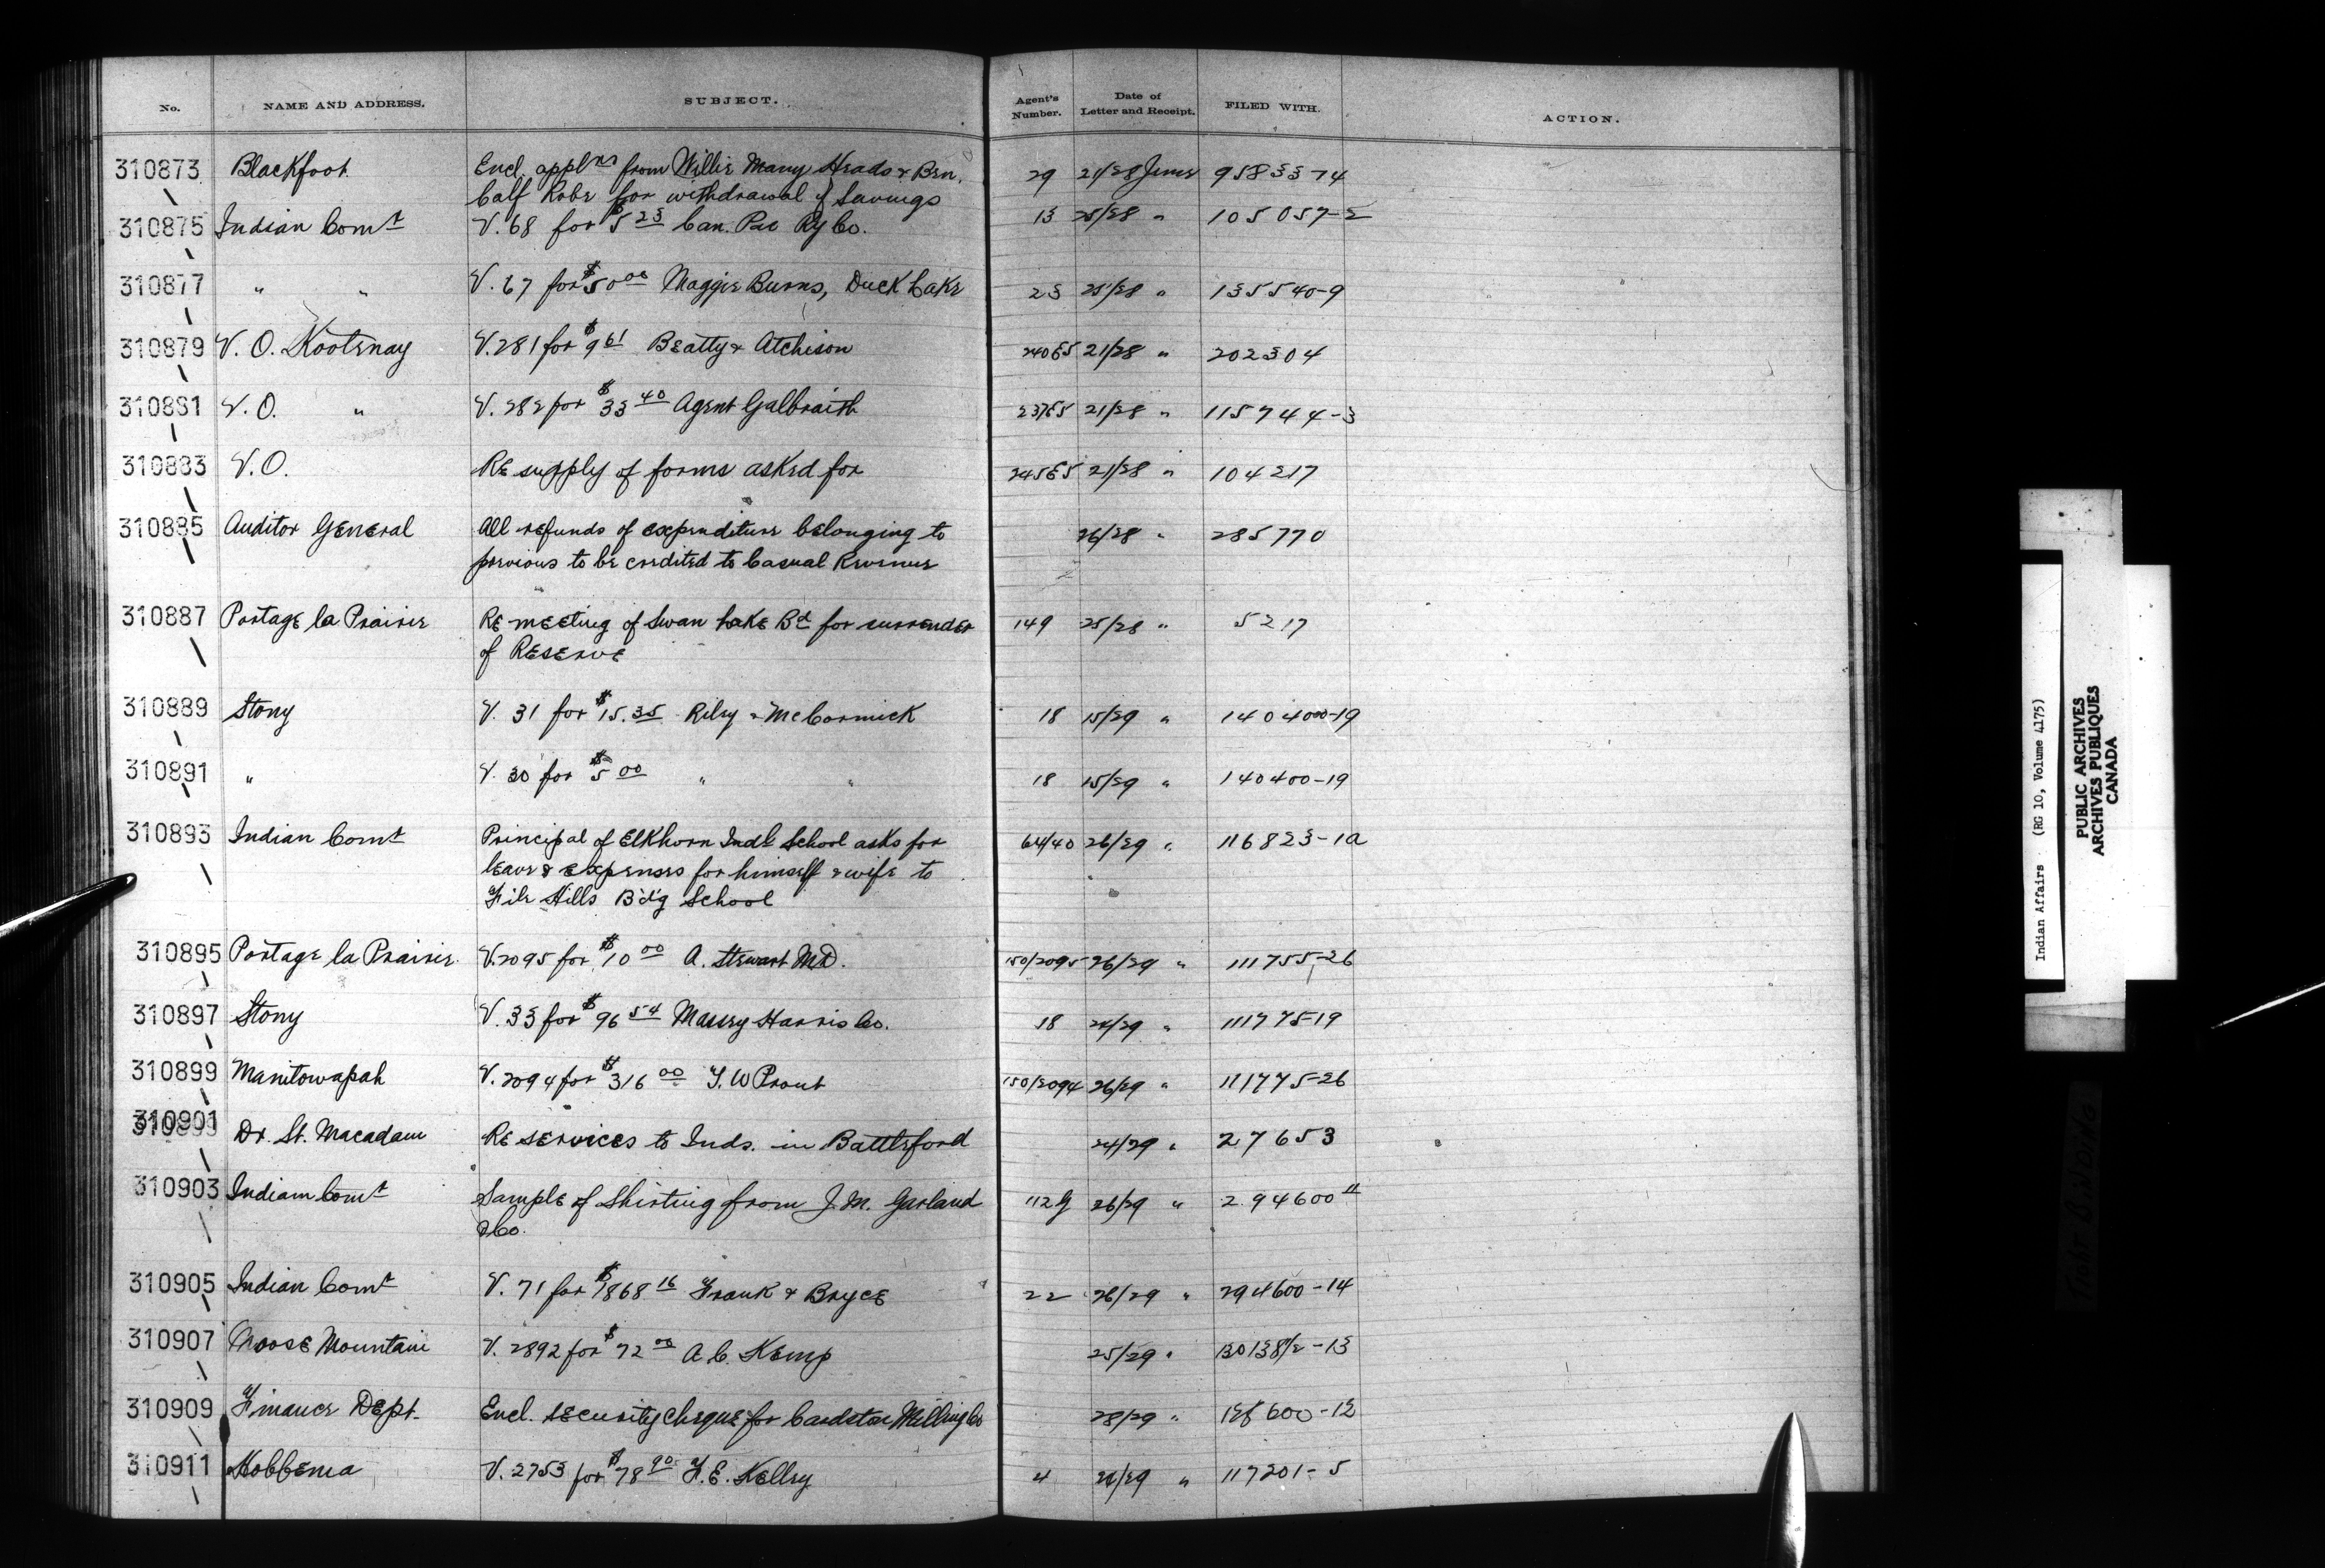 No. NAME AND ADDRESS. SUBJECT. Agent's Number. Date of Letter and Receipt. FILED WITH. ACTION.
310873 Blackfoot Encl. appl ns from Willie Many Heads & Ben. 29 21/28 June 95833-14
Calf Robe for withdrawal of Savings
310875 Indian Comr V. 68 for $5 23 Can. Pac Ry Co. 13 25/28 " 105057-2
310877 " " V. 67 for $50 00 Maggie Burns, Duck Lake 23 25/28 " 135540-9
310879 V. O. Kootenay V. 281 for $9 61 Beatty & Atchison 21/28 " 202304
310881 V. O. " V. 282 for $33 40 Agent Galbraith 21/28 " 115744-3
310883 V. O. Re supply of forms asked for 21/28 " 104217
310885 Auditor General All refunds of expenditure belonging to 26/28 " 285770
previous to be credited to Casual Revenue
310887 Portage la Prairie Re meeting of Swan Lake Bd for surrender 149 25/28 " 5217
of Reserve
310889 Stony V. 31 for $15.35 Riley & McCormick 18 15/29 "
310891 " V. 30 for $5 00 " " 18 15/29 " 140400-19
310893 Indian Comr Principal of Elkhorn Indl School asks for 64/40 26/29 " 116823-1a
leave & expenses for himself & wife to
File Hills B'd'g School
310895 Portage la Prairie V. 2095 for $10 00 A. Stewart MD. 150/2095 26/29 " 111755-26
310897 Stony V. 33 for $96 54 Massey Harris Co. 18 24/29 " 111775-19
310899 Manitowapah V. 2094 for $316 00 T. W Prout 150/2094 26/29 " 111775-26
310901 Dr. St. Macadam Re services to Inds. in Battleford 24/29 " 27653
310903 Indian Comr Sample of Shirting from J. M. Garland 112 G 26/29 " 294600 11
& Co.
310905 Indian Comr V. 71 for $1868 16 Frank & Bryce 22 26/29 " 294600-14
310907 Moose Mountain V. 2892 for $72 00 A. C. Kemp 25/29 " 130138/2-13
310909 Finance Dept. Encl. security cheque for Cardston Milling Co 28/29 "
310911 Hobbema V. 2753 for $78 90 F. E. Kelley 4 26/29 " 117201-5
Indian Affairs (RG 10, Volume 4175)
PUBLIC ARCHIVES
ARCHIVES PUBLIQUES
CANADA